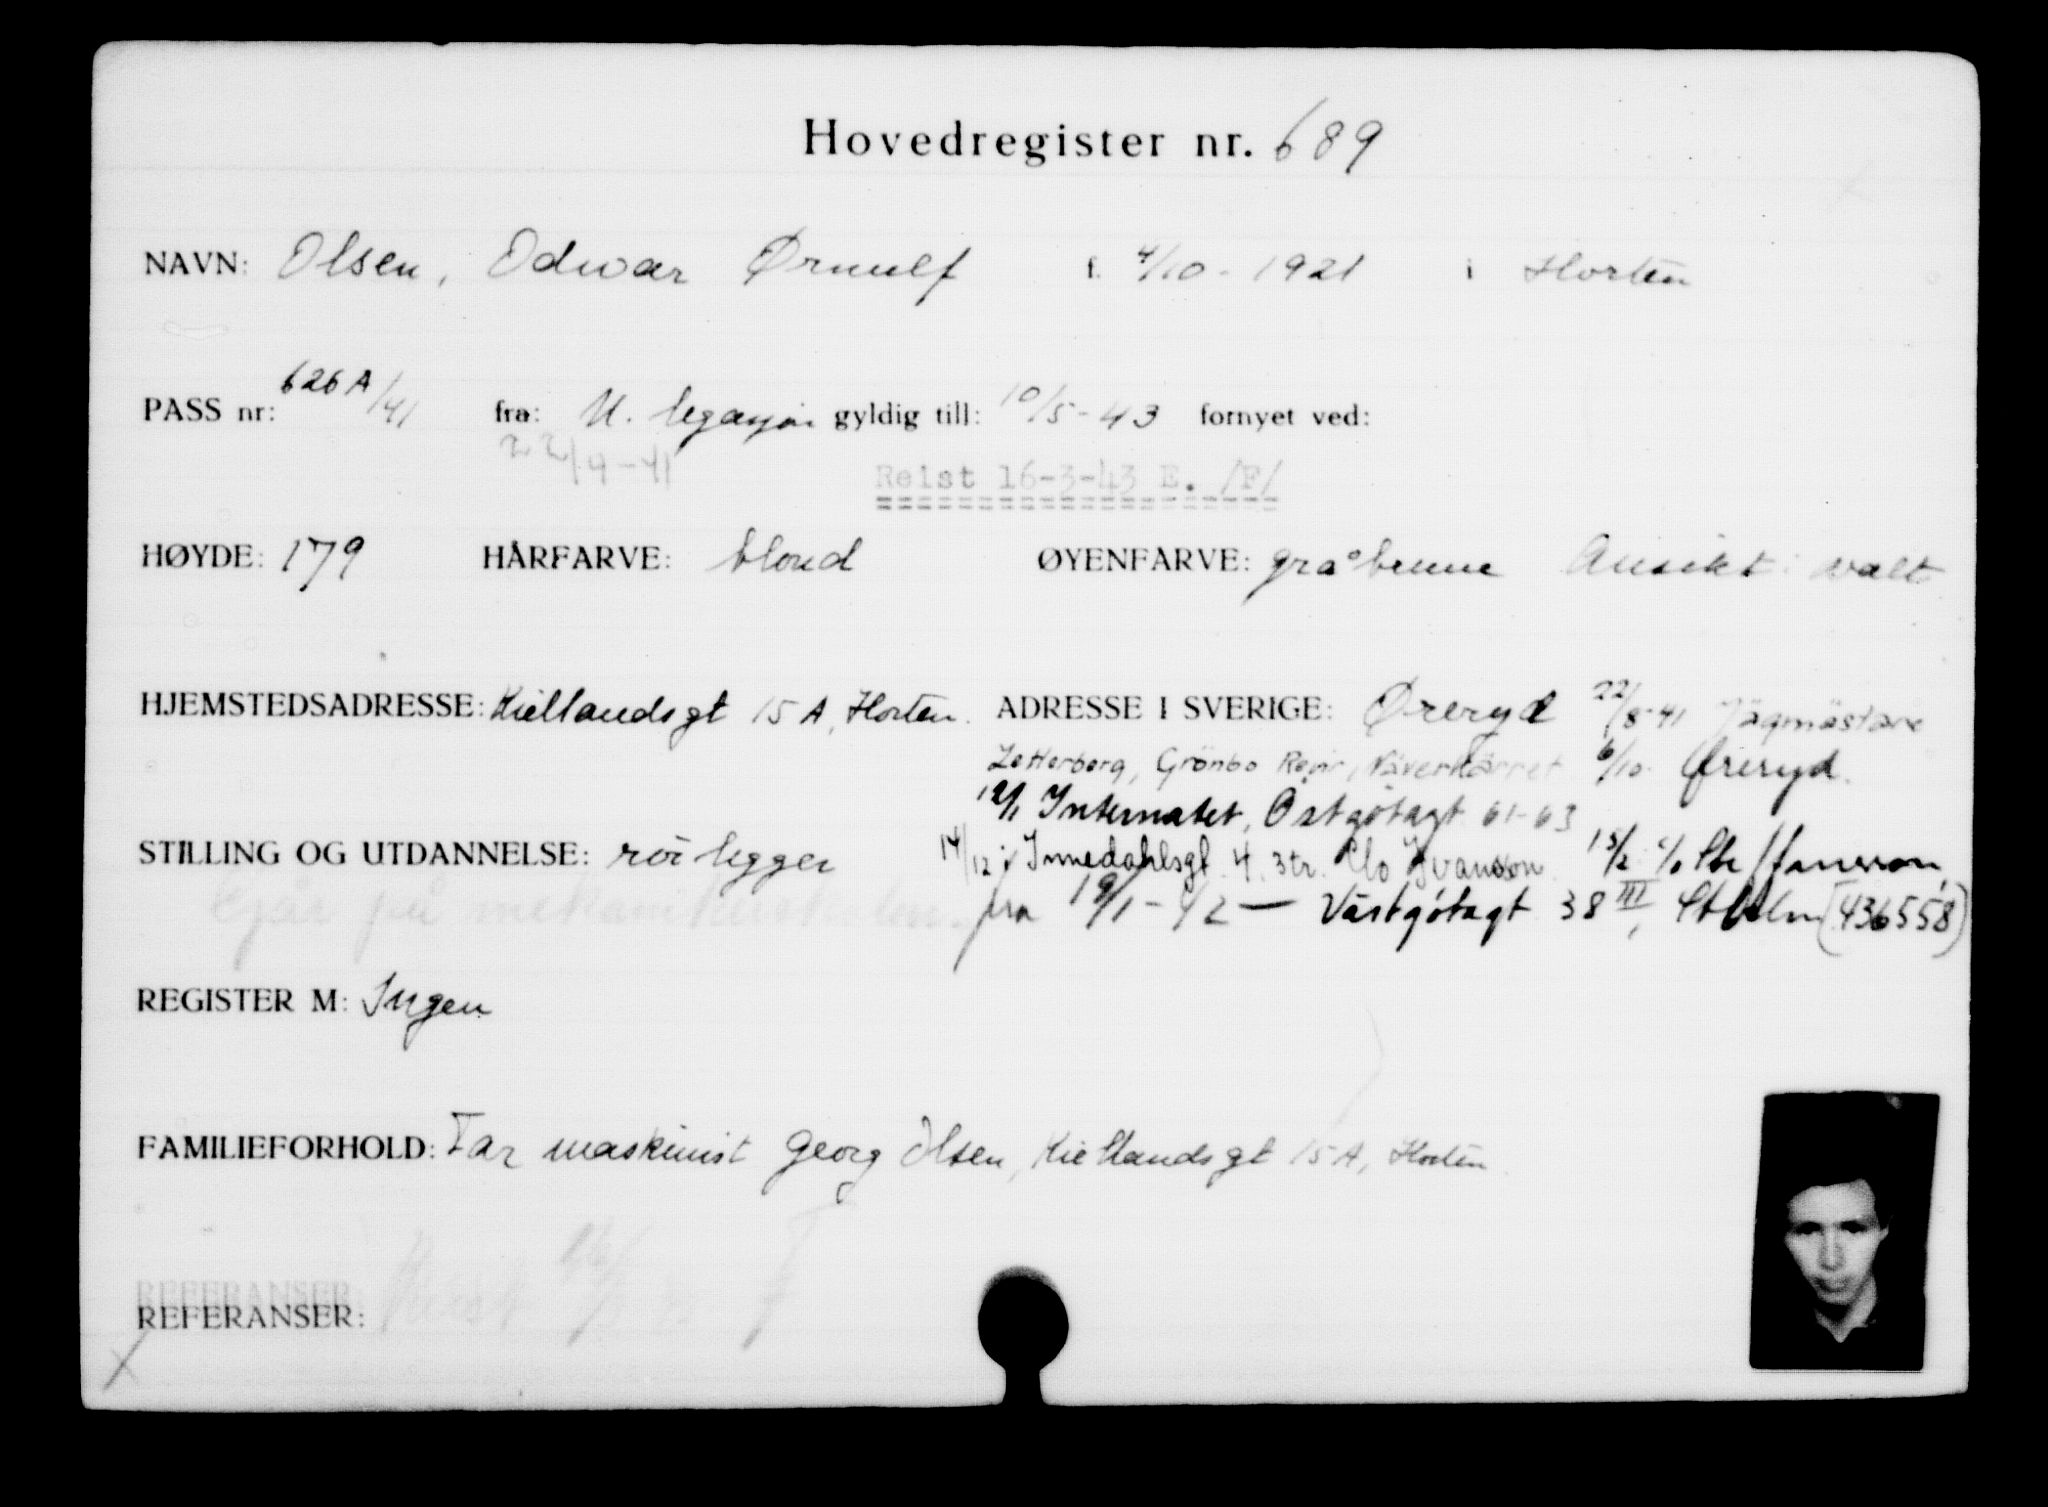 Hovedregister nr. 689
NAVN: Olsen, Odvar Ørnulf f. 4/10 - 1921 i Horten
PASS nr: 626 A/41 fra: N. legasjon gyldig till: 10/5 - 43 fornyet ved:
22/4-41
Reist 16-3-43 E. /F/
HØYDE: 179 HÅRFARVE: blond ØYENFARVE: gråbrune Ansikt: ovalt
HJEMSTEDSADRESSE: Kiellandsgt 15 A, Horten. ADRESSE I SVERIGE: Øreryd 22/8-41 Jägmästare
Zetterberg, Grönbo Revir, Näverkärret 6/10 Øreryd.
12/1 Internatet, Östgötagt 61-63
STILLING OG UTDANNELSE: rörlegger 14/12 Innedahlsgt. 4. 3tr. C/o Ivansson. 15/2 c/o Steffansson,
Går på fra 19/1-42 — Västgötagt 38 III, Stholm (436558)
REGISTER M: Ingen
FAMILIEFORHOLD: Far maskinist Georg Olsen, Kiellandsgt 15 A, Horten.
REFERANSER
REFERANSER:
X